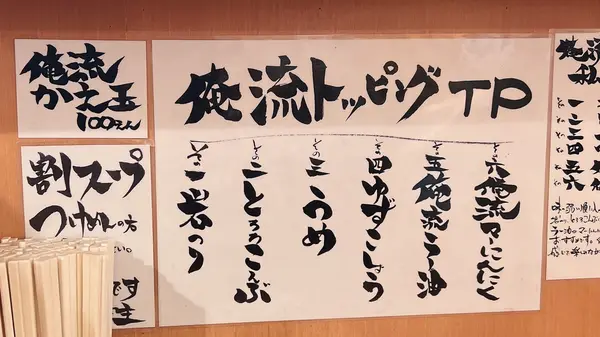 俺流
かえ玉
100えん
割スープ
つけめんの方
俺流トッピング TP
その一 岩のり
その二 とろろこんぶ
その三 うめ
その四 ゆずこしょう
その五 俺流ラー油
その六 俺流マーにんにく
一
二
三
四
五
六